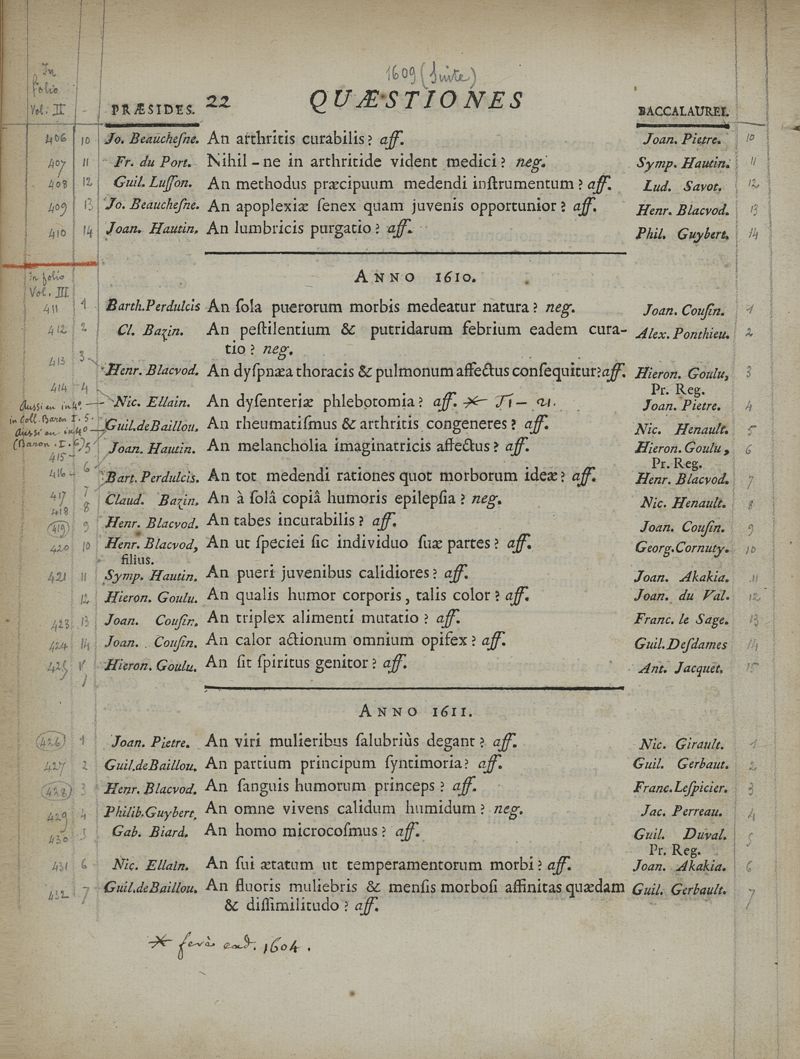 1609 (Suite)
In folio Vol. II
PRÆSIDES. 22 QUÆSTIONES BACCALAUREI.
406 10 Jo. Beauchesne. An arthritis curabilis? aff. Joan. Pietre. 10
407 11 Fr. du Port. Nihil-ne in arthritide vident medici? neg. Symp. Hautin. 11
408 12 Guil. Luſſon. An methodus præcipuum medendi inſtrumentum? aff. Lud. Savot. 12
409 13 Jo. Beaucheſne. An apoplexiæ ſenex quam juvenis opportunior? aff. Henr. Blacvod. 13
410 14 Joan. Hautin. An lumbricis purgatio? aff. Phil. Guybert. 14
ANNO 1610.
In folio Vol. III
411 1 Barth. Perdulcis An ſola puerorum morbis medeatur natura? neg. Joan. Couſin. 1
412 2 Cl. Bazin. An peſtilentium & putridarum febrium eadem cura- Alex. Ponthieu. 2
tio? neg.
413 3 Henr. Blacvod. An dyſpnæa thoracis & pulmonum affectus conſequitur? aff. Hieron. Goulu, 3
Pr. Reg.
414 4 Nic. Ellain. An dyſenteriæ phlebotomia? aff. Joan. Pietre. 4
Aussi en in 4º in Coll. Baron I. 5.
Guil. de Baillou. An rheumatiſmus & arthritis congeneres? aff. Nic. Henault. 5
Aussi en in 4º (Baron. I. 6)
415 5 Joan. Hautin. An melancholia imaginatricis affectus? aff. Hieron. Goulu, 6
Pr. Reg.
416 6 Bart. Perdulcis. An tot medendi rationes quot morborum ideæ? aff. Henr. Blacvod. 7
417 7 Claud. Bazin. An à ſolâ copiâ humoris epilepſia? neg. Nic. Henault. 8
418 8
419 9 Henr. Blacvod. An tabes incurabilis? aff. Joan. Couſin. 9
420 10 Henr. Blacvod, An ut ſpeciei ſic individuo ſuæ partes? aff. Georg. Cornuty. 10
filius.
421 11 Symp. Hautin. An pueri juvenibus calidiores? aff. Joan. Akakia. 11
12 Hieron. Goulu. An qualis humor corporis, talis color? aff. Joan. du Val. 12
423 13 Joan. Couſin. An triplex alimenti mutatio? aff. Franc. le Sage. 13
424 14 Joan. Couſin. An calor actionum omnium opifex? aff. Guil. Deſdames 14
425 15 Hieron. Goulu. An ſit ſpiritus genitor? aff. Ant. Jacquet. 15
ANNO 1611.
426 1 Joan. Pietre. An viri mulieribus ſalubriùs degant? aff. Nic. Girault. 1
427 2 Guil. de Baillou. An partium principum ſyntimoria? aff. Guil. Gerbaut. 2
428 3 Henr. Blacvod. An ſanguis humorum princeps? aff. Franc. Leſpicier. 3
429 4 Philib. Guybert, An omne vivens calidum humidum? neg. Jac. Perreau. 4
430 5 Gab. Biard. An homo microcoſmus? aff. Guil. Duval. 5
Pr. Reg.
431 6 Nic. Ellain. An ſui ætatum ut temperamentorum morbi? aff. Joan. Akakia. 6
432 7 Guil. de Baillou. An fluoris muliebris & menſis morboſi affinitas quædam Guil. Gerbault. 7
& diſſimilitudo? aff.
1604.